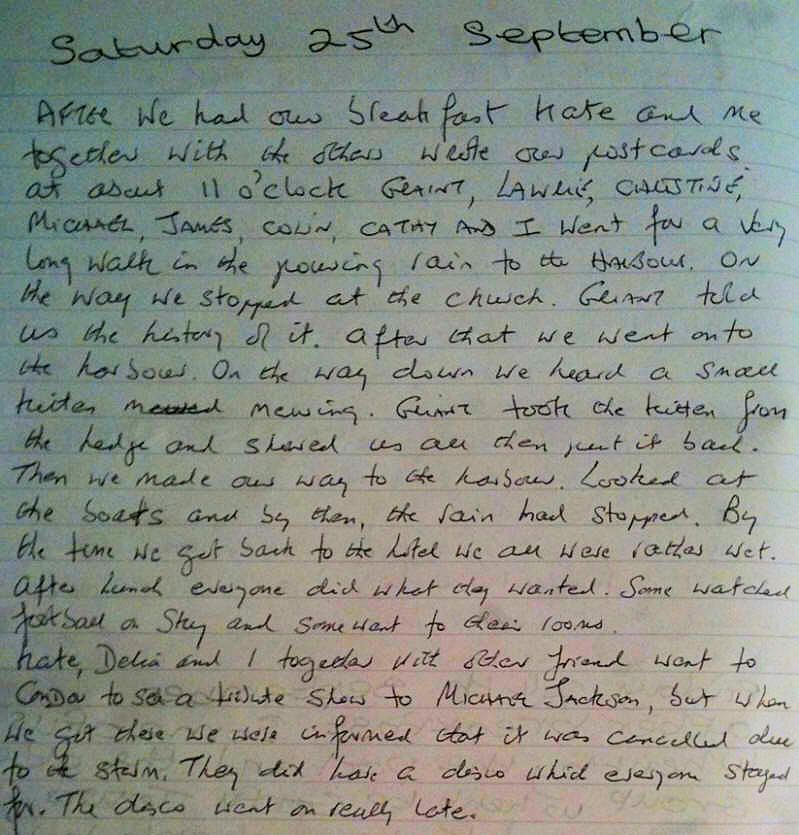 Saturday 25th September
AFTER we had our breakfast Kate and me
together with the others wrote our postcards.
at about 11 o'clock GRANT, LAWRIE, CHRISTINE,
MICHAEL, JAMES, COLIN, CATHY AND I went for a very
long walk in the pouring rain to the HARBOUR. ON
the way we stopped at the church. GRANT told
us the history of it. After that we went onto
the harbour. On the way down we heard a small
kitten mewed mewing. GRANT took the kitten from
the hedge and showed us all then put it back.
Then we made our way to the harbour. Looked at
the boats and by then, the rain had stopped. By
the time we got back to the hotel we all were rather wet.
After lunch everyone did what they wanted. Some watched
football on Sky and some went to their rooms.
Kate, Delia and I together with other friend went to
to see a tribute show to MICHAEL Jackson, but when
we got there we were informed that it was cancelled due
to the storm. They did have a disco which everyone stayed
for. The disco went on really late.